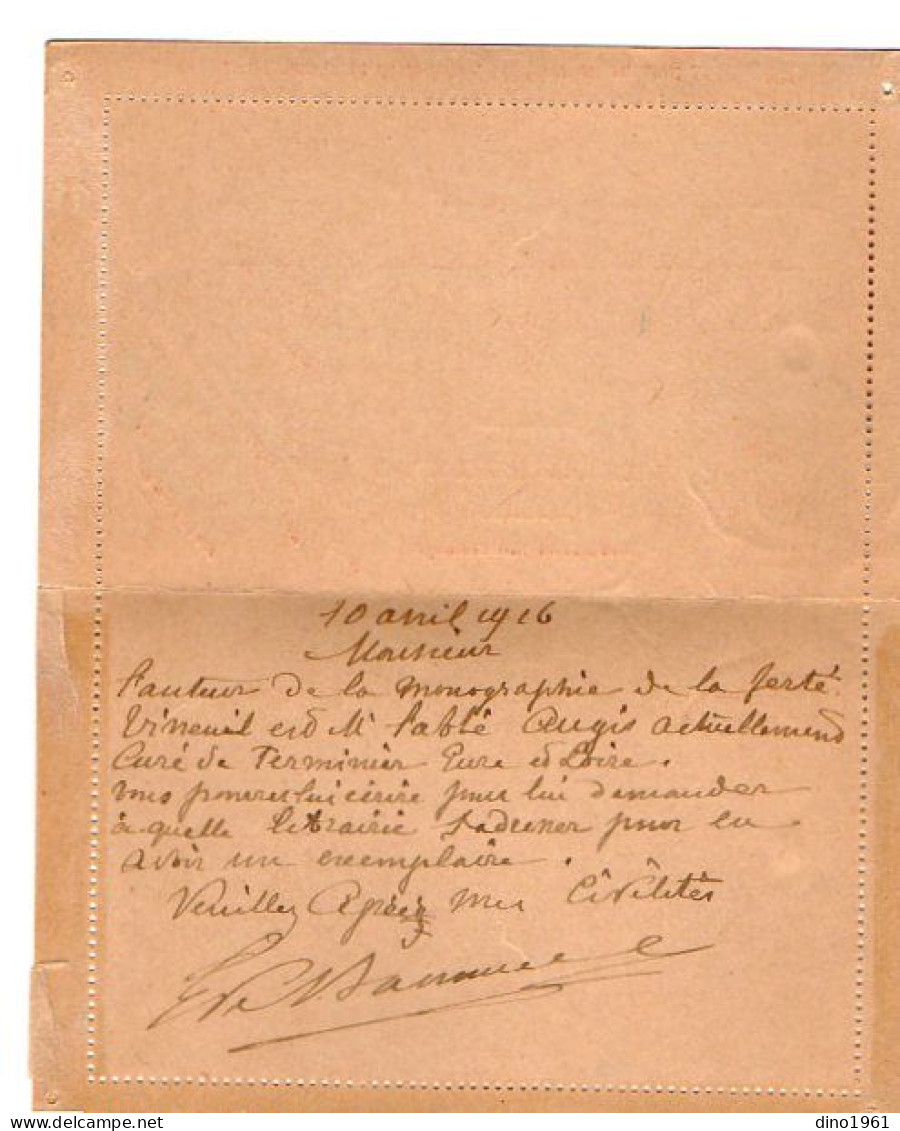 10 avril 1916
Monsieur
l'auteur de la monographie de la ferté
Vineuil est Mr l'abbé Augis actuellement
Curé de Terminier Eure et Loire.
vous pouvez lui écrire pour lui demander
à quelle librairie s'adresser pour en
avoir un exemplaire.
Veuillez Agréez mes Civilités
dino1961